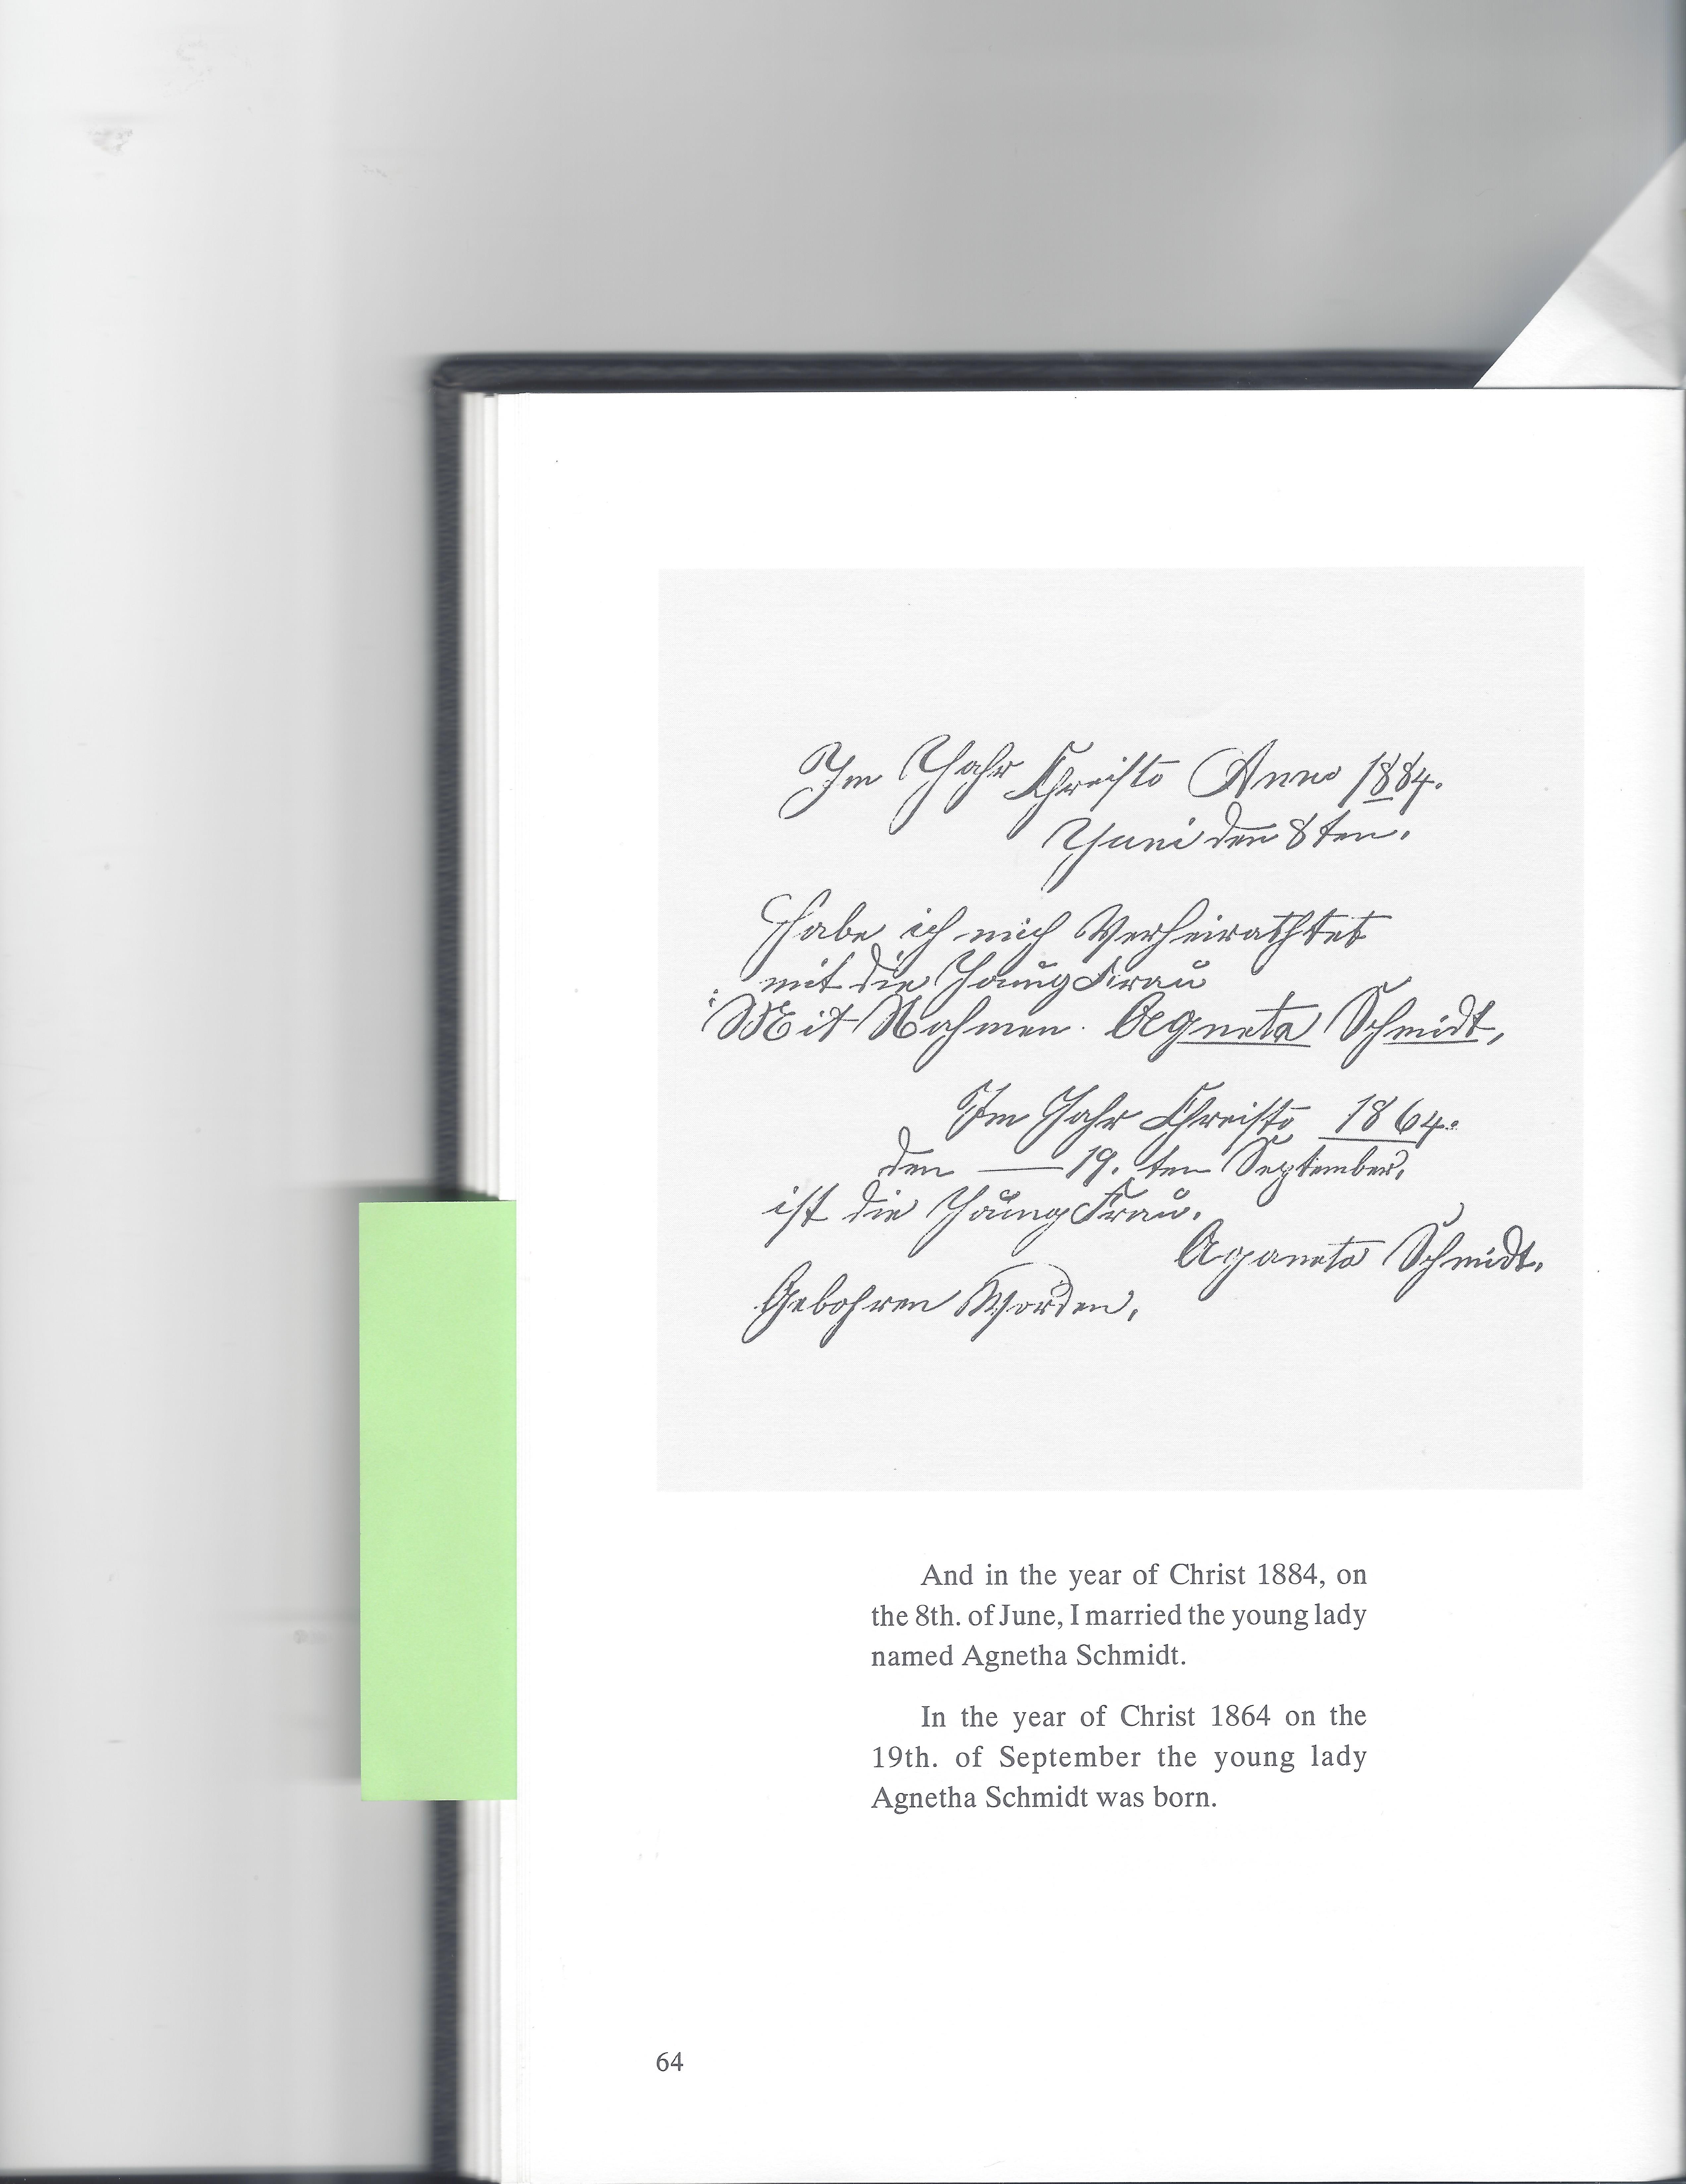 Im Jahr Christo Anno 1884.
Juni den 8ten.
Habe ich mich Verheirathtet
mit die Joung Frau
Mit Nahmen. Agneta Schmidt,
Im Jahr Christo 1864.
den — 19. ten September,
ist die Joung Frau.
Aganeta Schmidt.
Gebohren Worden,
And in the year of Christ 1884, on
the 8th. of June, I married the young lady
named Agnetha Schmidt.
In the year of Christ 1864 on the
19th. of September the young lady
Agnetha Schmidt was born.
64